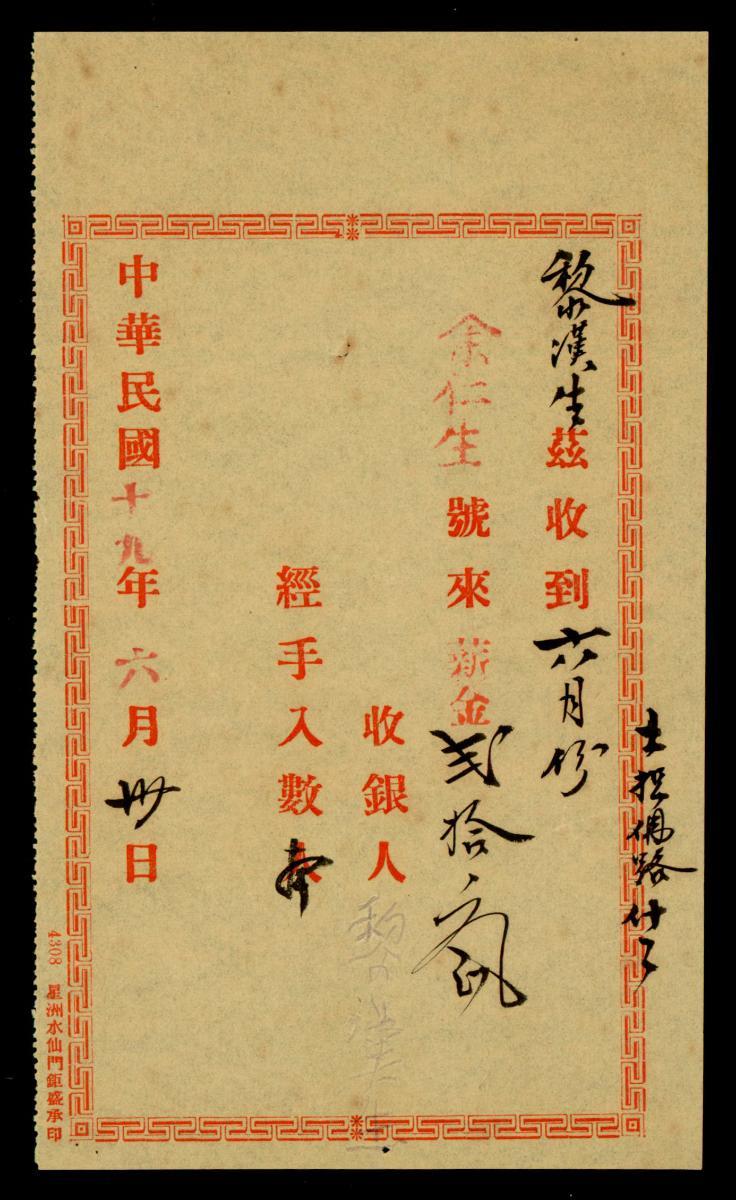 黎漢生茲收到六月份
余仁生號來薪金弍拾
收銀人黎漢生
經手入數人
中華民國十九年六月卅日
4308 星洲水仙門鉅盛承印